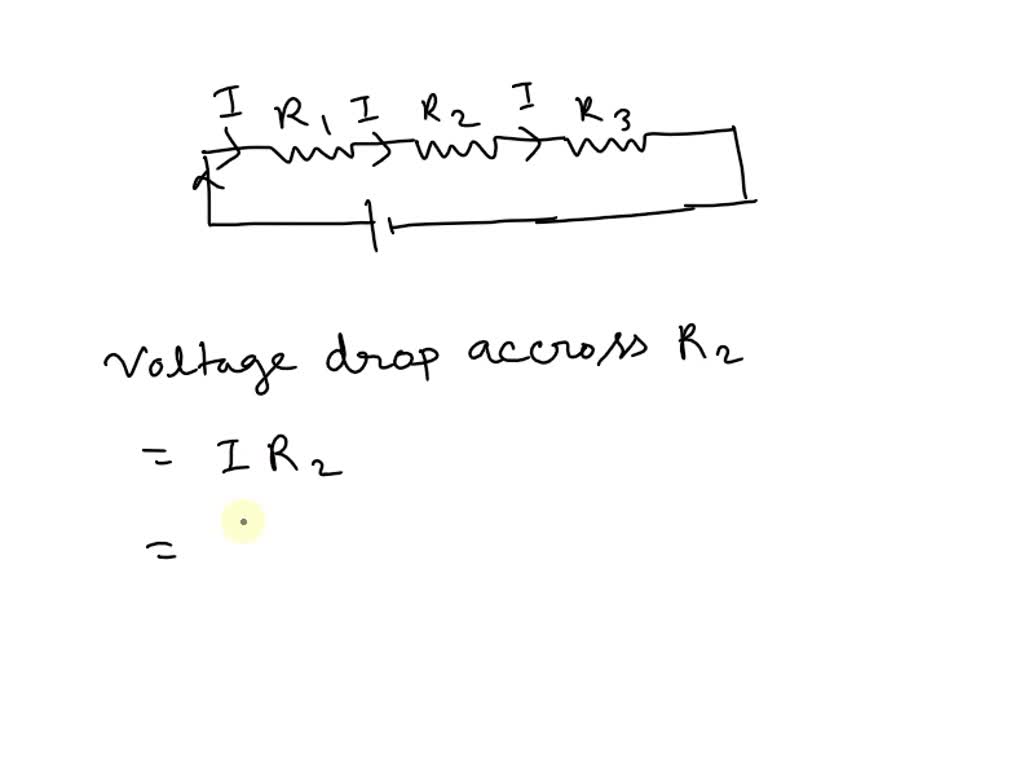 I R1 I R2 I R3
Voltage drop accross R2
= I R2
=